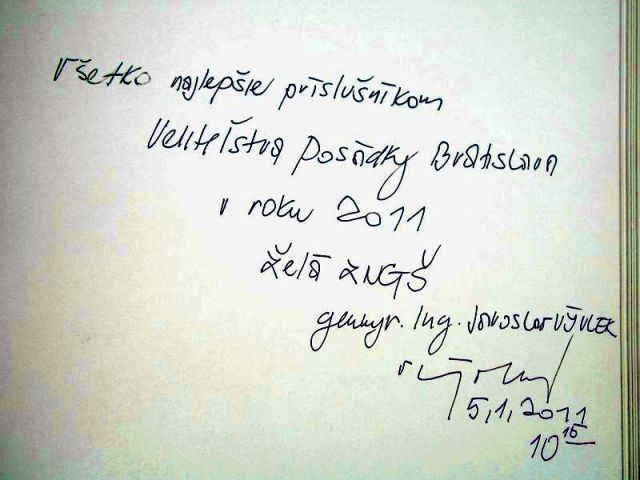 Všetko najlepšie príslušníkom
Veliteľstva posádky Bratislava
v roku 2011
želá ZNGŠ
genmjr. Ing. Jaroslav VÝVLEK
5,1,2011
10 15